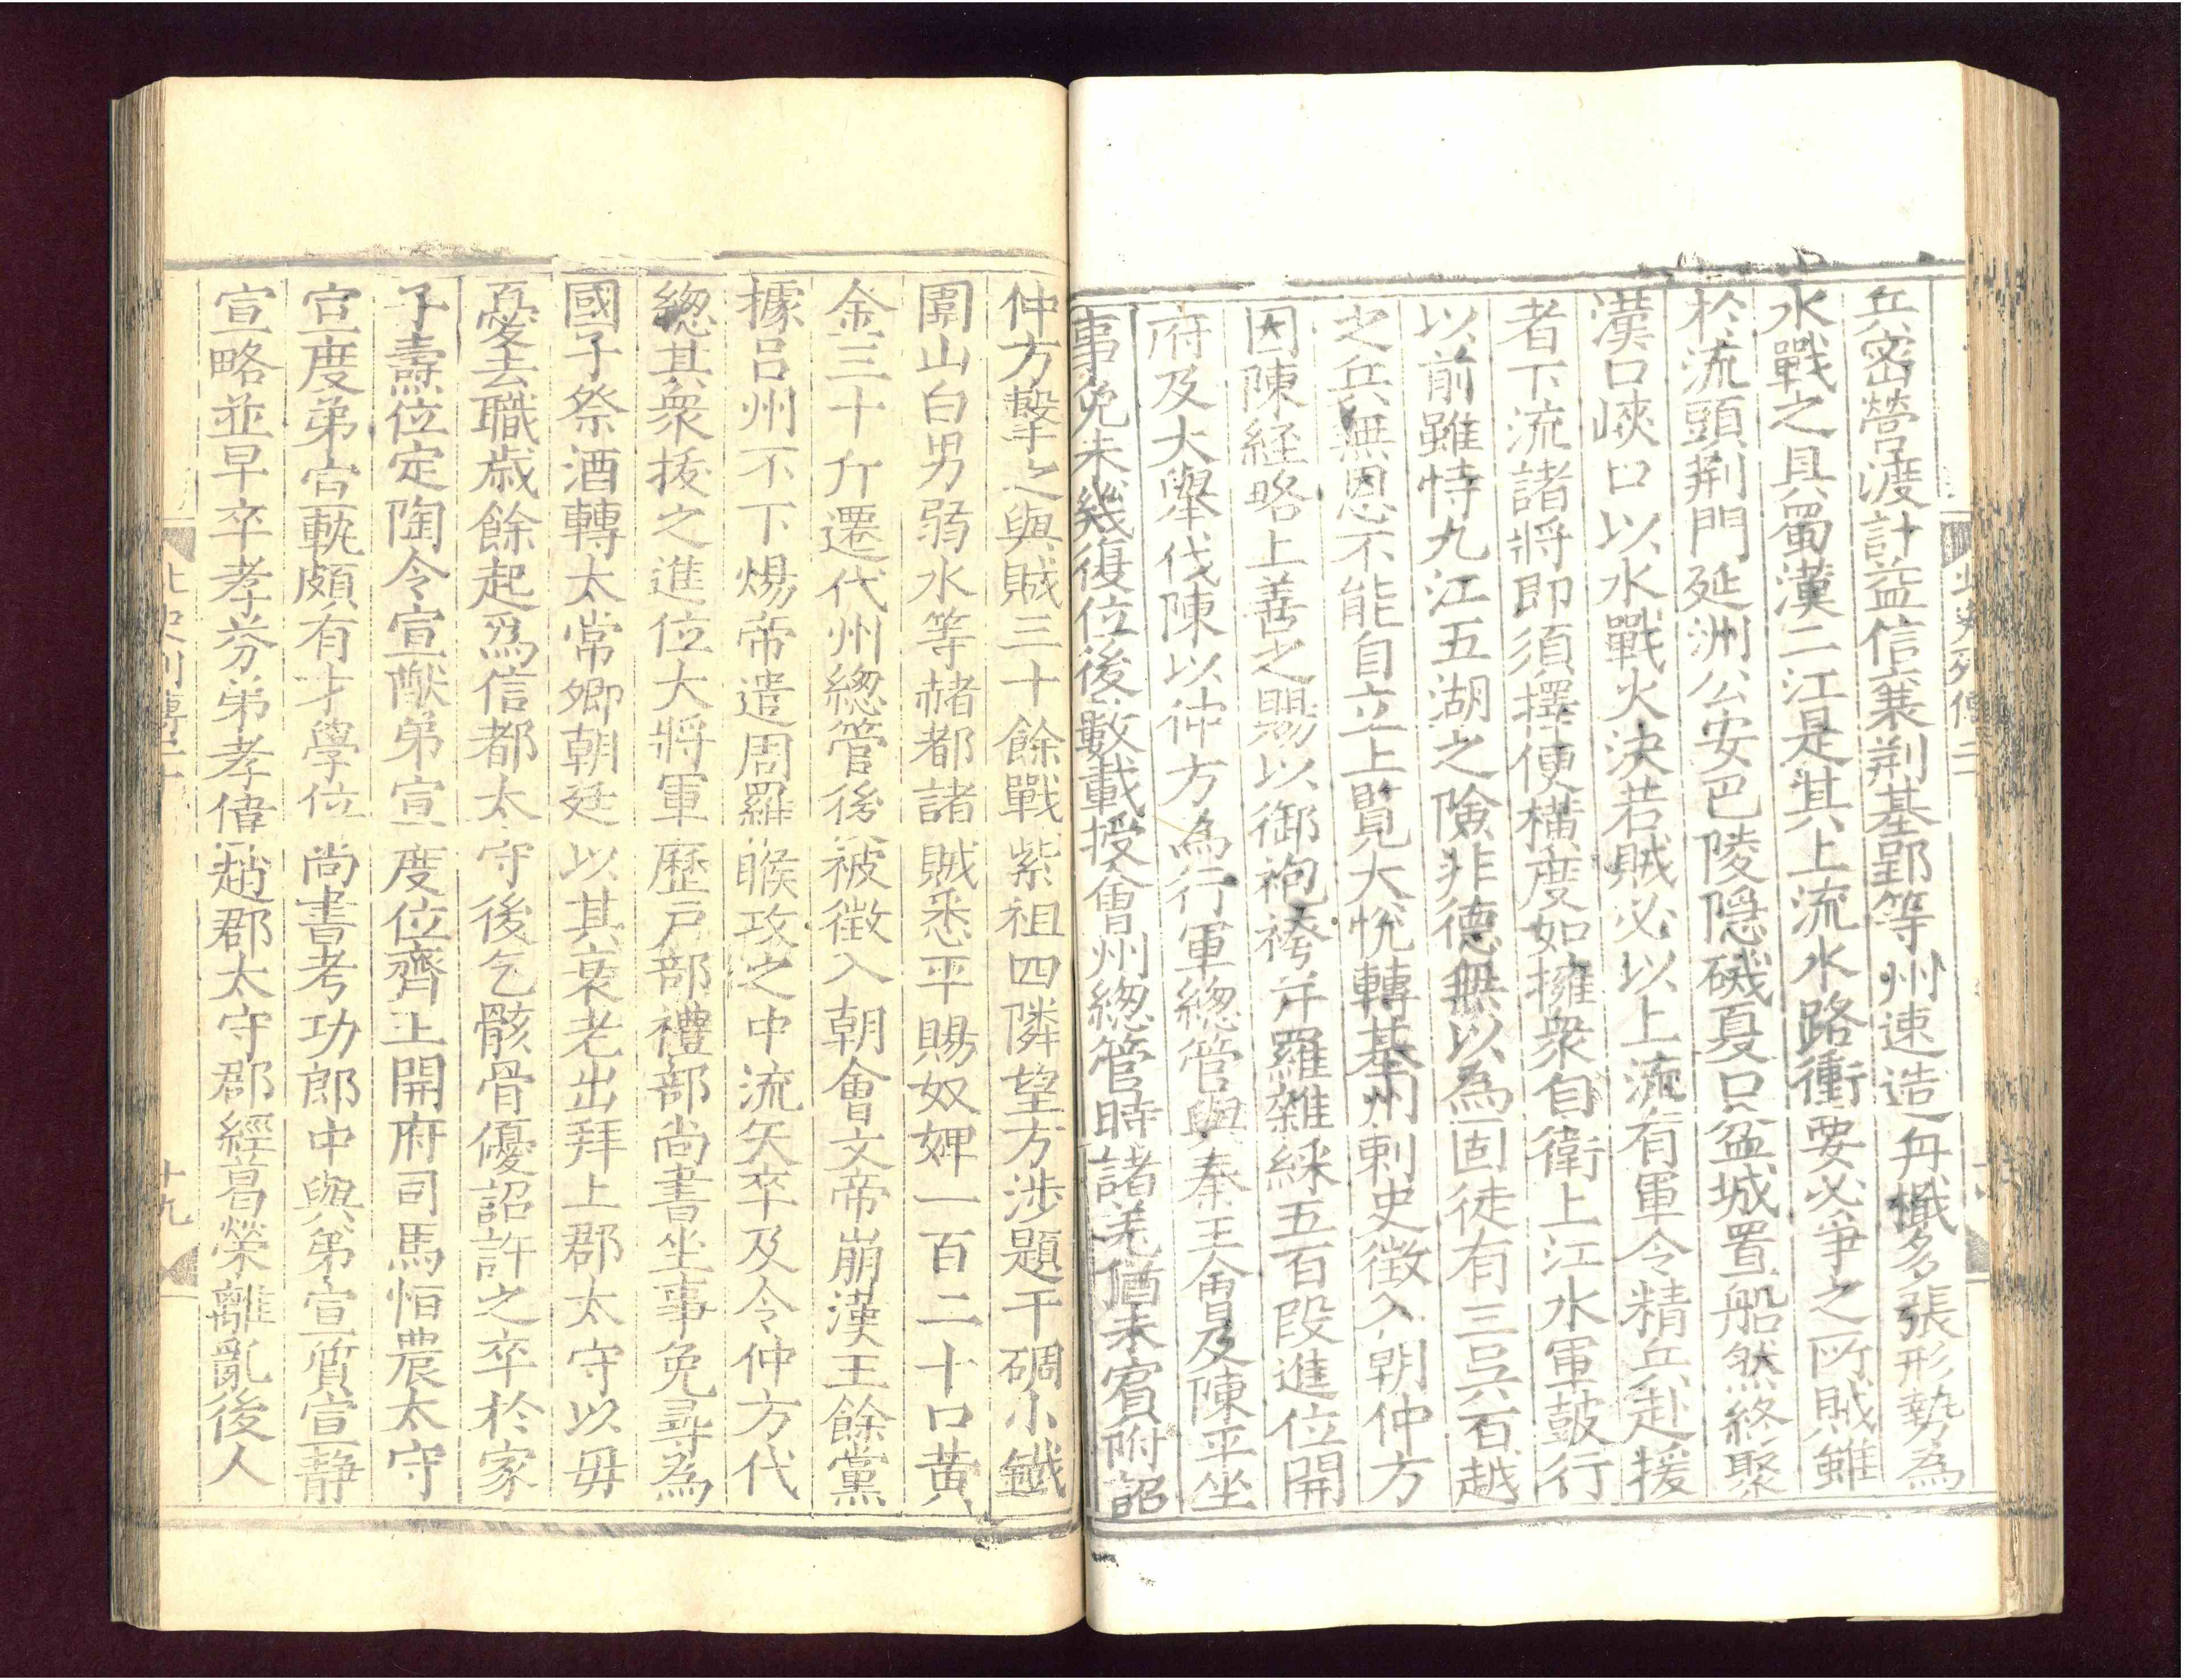 兵密營渡計益信襄荆基郢等州速造舟檝多張形勢為
水戰之具蜀漢二江是其上流水路衝要必爭之所賊雖
於流頭荆門延洲公安巴陵隠磯夏口盆城置船然終聚
漢口峽口以水戰大決若賊必以上流有軍令精兵赴援
者下流諸將即須擇便橫度如擁衆自衛上江水軍鼓行
以前雖恃九江五湖之險非德無以為固徒有三吳百越
之兵無恩不能自立上覽大悅轉基州刺史徵入朝仲方
因陳経略上善之賜以御袍袴并羅雜綵五百段進位開
府及大舉伐陳以仲方為行軍緫管與秦王會及陳平坐
事免未幾復位後數載授會州緫管時諸羌猶未賓附詔
仲方擊之與賊三十餘戰紫祖四隣望方涉題干碉小鐵
圍山白男弱水等諸都諸賊悉平賜奴婢一百二十口黃
金三十斤遷代州緫管後被徵入朝會文帝崩漢王餘黨
據呂州不下煬帝遣周羅睺攻之中流矢卒及令仲方代
緫其衆拔之進位大將軍歷戶部禮部尚書坐事免尋為
國子祭酒轉太常卿朝廷以其衰老出拜上郡太守以毋
憂去職歲餘起爲信都太守後乞骸骨優詔許之卒於家
子燾位定陶令宣猷弟宣度位齊上開府司馬恒農太守
宣度弟宣軌頗有才學位尚書考功郎中與弟宣質宣靜
宣略並早卒孝芬弟孝偉趙郡太守郡經葛榮離亂後人
北史列傳二十
十九